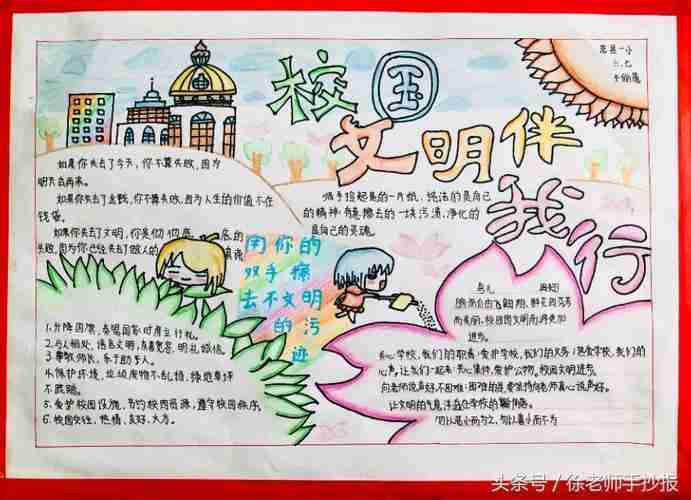 校园
文明伴
我行
范县一小
三、七
如果你失去了今天，你不算失败，因为
明天会再来。
如果你失去了金钱，不算失败，因为人生的价值不在
钱袋。
如果你失去了文明，你是彻彻底底的
失败，因为你已经失去了做人的真谛
用你的
双手擦
去不文明
的污
迹
1.升降国旗，奏唱国歌时肃立行礼。
2.与人相处，语言文明，有喜宽容，明礼诚信。
3.尊敬师长，乐于助等人。
4.保护环境，垃圾废物不乱扔，绿遮草坪
不践踏。
5.爱护校园设施，节约校内资源，遵守校园秩序。
6.校园交往，热情、友好、大方。
顺手捡起的一片纸，纯洁的是自己
的精神，有意擦去的一块污渍，净化的
是自己的灵魂。
鸟儿 因知
进步。
关心学校，我们的职责，爱护学校，我们的义务，热爱学校，我们的
心声，让我们一起来，关心集体，爱护公物。校园文明进步。
向老师说声好，不困难，困难的是要坚持向老师真心说声好。
让文明的气息洋溢在学校的
勿以恶小而为之，勿以善小而不为
头条号／徐老师手抄报